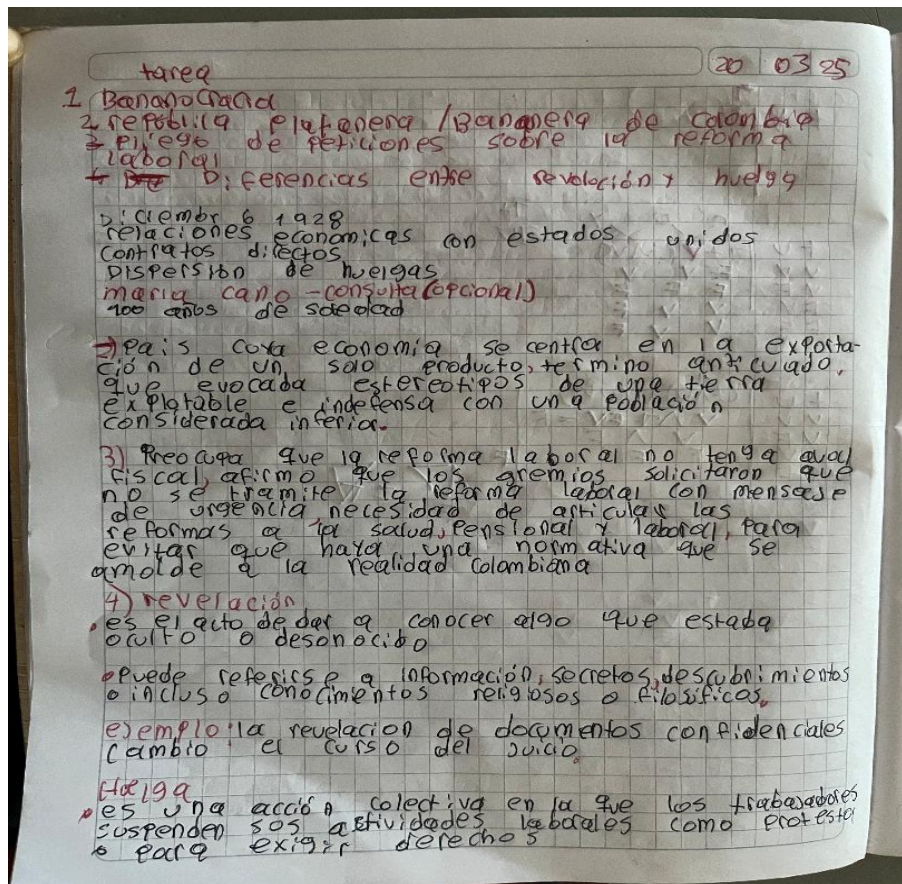 tarea 20 03 25
1 Bananocracia
2 republica platanera / Bananera de colombia
3 pliego de peticiones sobre la reforma
laboral
4 Diferencias entre revolución y huelga
Diciembr 6 1928
relaciones economicas con estados unidos
contratos directos
Dispersion de huelgas
maria cano - consulta (opcional)
100 años de soledad
Pais cuya economia se centra en la exporta-
ción de un solo producto, termino anticuado,
que evocaba estereotipos de una tierra
explotable e indefensa con una población
considerada inferior.
3) Preocupa que la reforma laboral no tenga aval
fiscal, afirmo que los gremios solicitaron que
no se tramite la reforma laboral con mensaje
de urgencia, necesidad de articular las
reformas a la salud, Pensional y laboral, para
evitar que haya una normativa que se
amolde a la realidad colombiana
4) revelación
• es el acto de dar a conocer algo que estaba
oculto o desonocido
• puede referirse a información, secretos, descubrimientos
o incluso conocimentos religiosos o filosificos.
ejemplo: la revelacion de documentos confidenciales
cambio el curso del juicio.
Huelga
• es una acción colectiva en la que los trabajadores
suspenden sus actividades laborales como protesta
o para exigir derechos